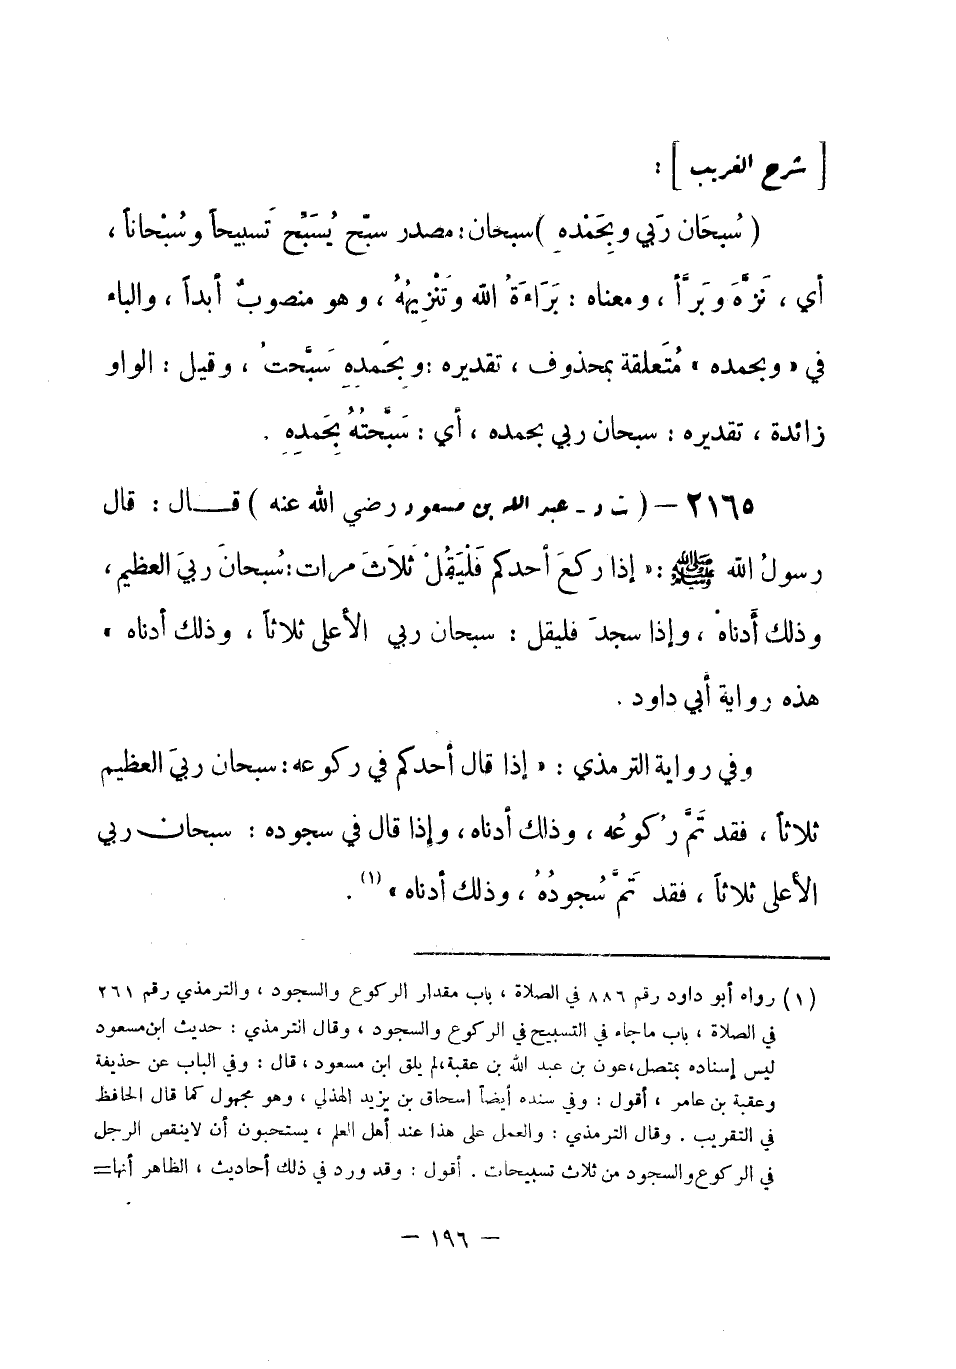 [ شرح الغريب ] :
( سُبحَان رَبي وبِحَمْدِه ) سبحان : مصدر سبّح يُسَبِّح تَسبيحاً وسُبْحاناً ،
أي ، نَزَّهَ وبَرَّأَ ، ومعناه : بَرَاءَةُ الله وتَنْزِيهُهُ ، وهو منصوبٌ أبداً ، والباء
في « وبحمده » مُتَعلقة بمحذوف ، تقديره : وبِحَمدِهِ سَبَّحتُ ، وقيل : الواو
زائدة ، تقديره : سبحان ربي بحمده ، أي : سَبَّحتُهُ بِحَمدِهِ .
٢١٦٥ – ( ت د - عبد الله بن مسعود رضي الله عنه ) قـــال : قال
رسولُ الله ﷺ : « إذا ركعَ أحدكم فَلْيَقُلْ ثَلاَثَ مرات : سُبحانَ ربيَ العظيم ،
وذلك أَدناهْ ، وإذا سجدَ فليقل : سبحان ربي الأعلى ثلاثاً ، وذلك أدناه »
هذه رواية أبي داود .
وفي رواية الترمذي : « إذا قال أحدكم في ركوعه : سبحان ربيَ العظيم
ثلاثاً ، فقد تَمَّ رُكوعُه ، وذلك أدناه ، وإذا قال في سجوده : سبحان ربي
الأعلى ثلاثاً ، فقد تَمَّ سُجودُهُ ، وذلك أدناه » (١) .
(١) رواه أبو داود رقم ٨٨٦ في الصلاة ، باب مقدار الركوع والسجود ، والترمذي رقم ٢٦١
في الصلاة ، باب ماجاء في التسبيح في الركوع والسجود ، وقال الترمذي : حديث ابن مسعود
ليس إسناده بمتصل ، عون بن عبد الله بن عقبة ، لم يلق ابن مسعود ، قال : وفي الباب عن حذيفة
وعقبة بن عامر ، أقول : وفي سنده أيضاً اسحاق بن يزيد الهذلي ، وهو مجهول كما قال الحافظ
في التقريب . وقال الترمذي : والعمل على هذا عند أهل العلم ، يستحبون أن لاينقص الرجل
في الركوع والسجود من ثلاث تسبيحات . أقول : وقد ورد في ذلك أحاديث ، الظاهر أنها=
– ١٩٦ –